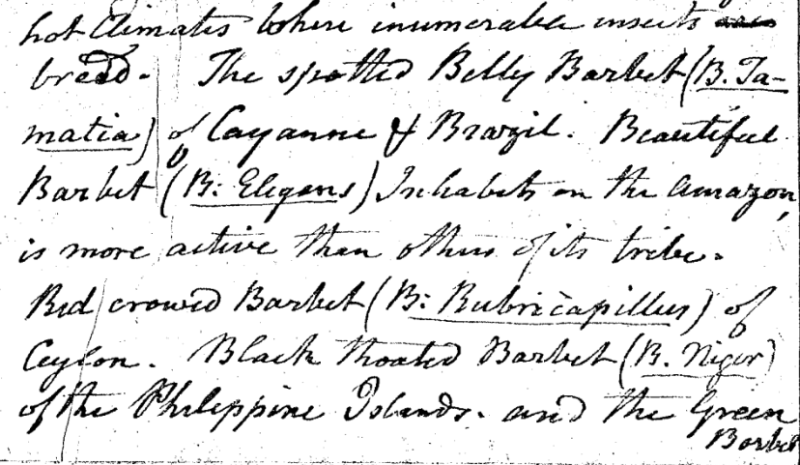 hot climates where inumerable insects are
breed. The spotted Belly Barbet (B. Ta-
matia) of Cayanne & Brazil. Beautiful
Barbet (B: Elegans) Inhabets on the amazon,
is more active than others of its tribe.
Red crowed Barbet (B: Rubricapillus) of
Ceylon. Black thoated Barbet (B. Niger)
of the Philippine Islands. and the Green
Barbet